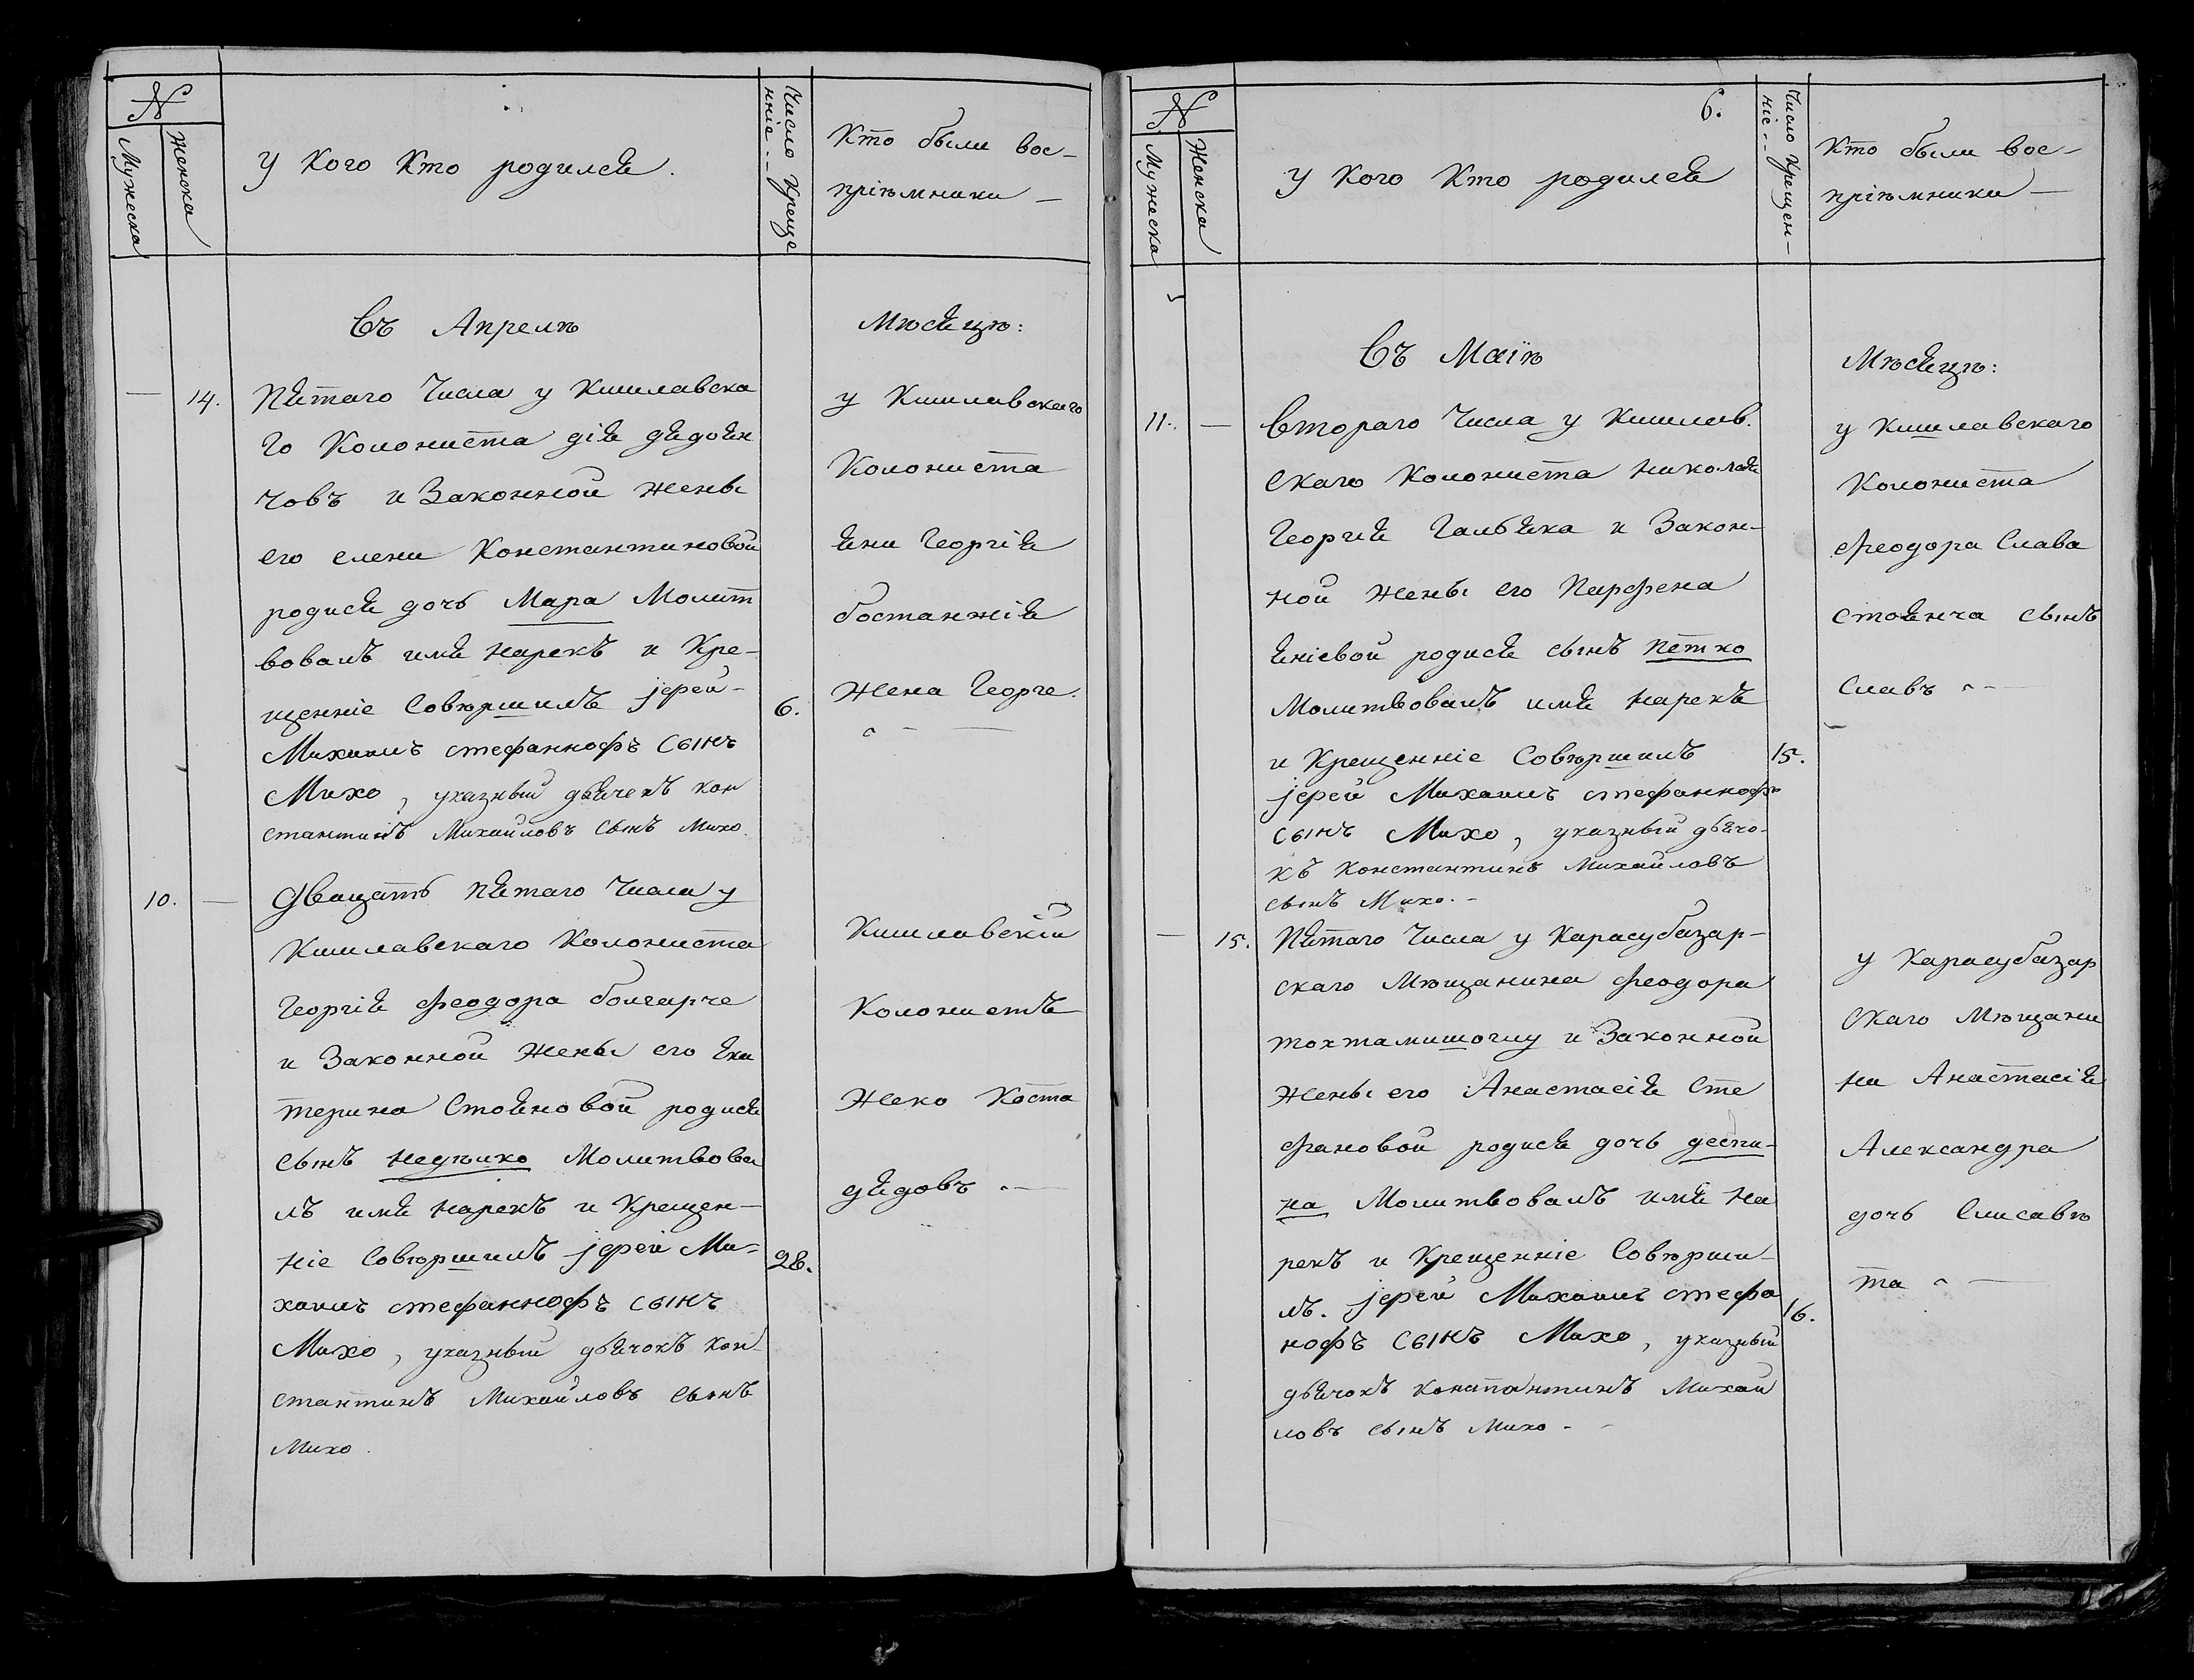 №
Мужеска
Женска
У кого Кто родился.
Число Креще
нніе - -
Кто были вос-
пріѣмники -
Въ Апрелѣ
Мѣсяцѣ:
— 14. Пятаго Числа у Кишлавска
го Колониста дія дядоян
човъ и Законной жены
его елени Константиновой
родися дочь Мара Молит
вовалъ имя нарекъ и Кре-
щенніе Совѣршилъ јерей-
6.
Михаилъ стефанкофъ сынъ
Михо, указный дьяченъ кон
стантинъ Михайловъ сынъ Михо.
у Кишлавскаго
Колониста
яни Георгія
бостанжія
Жена Георге.
10. — Дващать пятаго Числа у
Кишлавскаго Колониста
Георгія Феодора болгарче
и Законной жены его яка
терина Стояновой родися
сынъ недѣлко Молитвова
лъ имя нарекъ и Крещен-
ніе Совѣршилъ јерей Ми-
28.
хаилъ стефанкофъ сынъ
Михо, указный дьячокъ кон-
стантинъ Михайловъ сынъ
Михо.
Кишлавскій
Колонистъ
Жеко Коста
дядовъ. —
6.
№
Мужеска
Женска
У Кого Кто родился
Число Крещен-
ніе - -
Кто были вос-
пріѣмники —
Въ Маіѣ
Мѣсяцѣ:
11. — Втораго Числа у Кишлав.
скаго Колониста николая
Георгия Гальяка и Закон-
ной жены его Парфена
янієвой родися сынъ петко
Молитвовалъ имя нарекъ
и Крещенніе Совѣршилъ
15.
јерей Михаилъ стефанкофъ
сынъ Михо, указный дьячо-
къ Константинъ Михайловъ
сынъ Михо. -
у Кишлавскаго
Колониста
Феодора Слава
стоянча сынъ
Славъ - -
— 15. Пятаго Числа у Карасубазар-
скаго Мѣщанина Феодора
тохтамишоглу и Законной
жены его Анастасія Сте
фановой родися дочь деспи-
на Молитвовалъ имя на
рекъ и Крещенніе Совѣрши-
лъ. јерей Михаилъ стефа
16.
нофъ сынъ Михо, указный
дьячокъ константинъ Михай
ловъ сынъ Михо - -
у Карасубазар
скаго Мѣщани
на Анастасія
Александра
дочь Елисавѣ
та - —